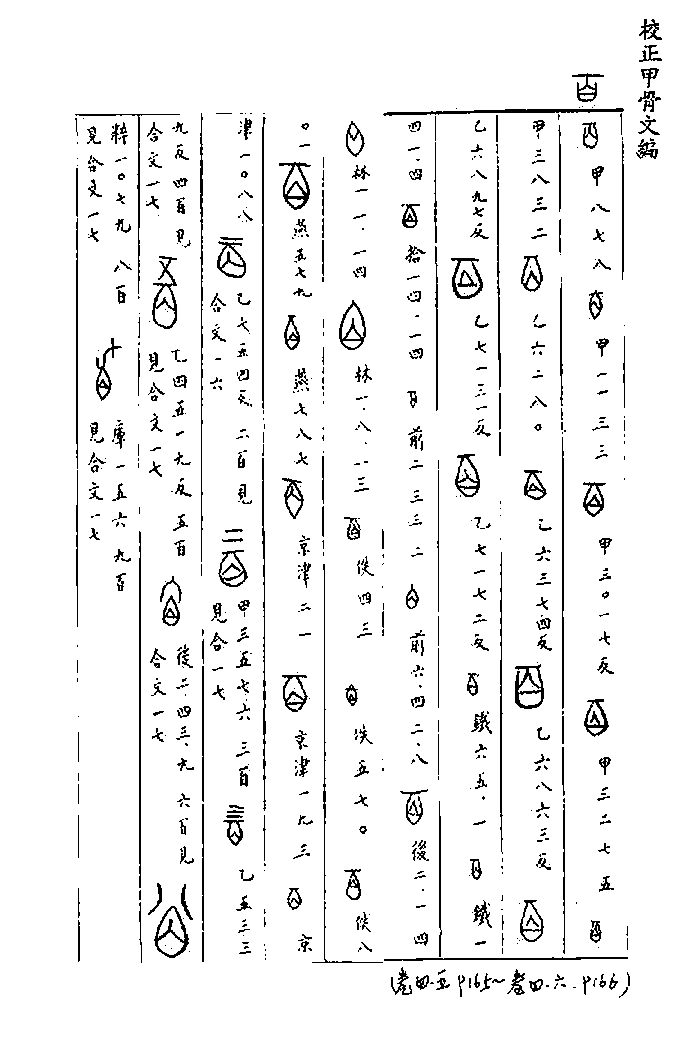 校正甲骨文編
甲八七八 甲一一三三 甲三〇一七反 甲三二七五
甲三八三二 乙六二八〇 乙六三七四反 乙六八六三反
乙六八九七反 乙七一三一反 乙七一七二反 鐵六五.一 鐵一
四一.四 拾一四.一四 前二三三二 前六.四二.八 後二.一四
林一一.一四 林一.八.一三 佚四三 佚五七〇 佚八
〇一 燕五七九 燕七八七 京津二一 京津一九三 京
津一〇八八 乙七五四反 二百見合文一六 甲三五七六 三百見合一七 乙五三三
九反 四百見合文一七 乙四五一九反 五百見合文一七 後二.四三.九 六百見合文一七
粹一〇七九 八百見合文一七 庫一五六 九百見合文一七
(卷四.五 P165~卷四.六.P166)